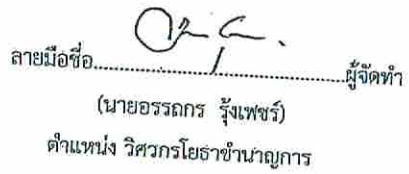 ลายมือชื่อ..................................................ผู้จัดทำ
(นายอรรถกร รุ้งเพชร์)
ตำแหน่ง วิศวกรโยธาชำนาญการ